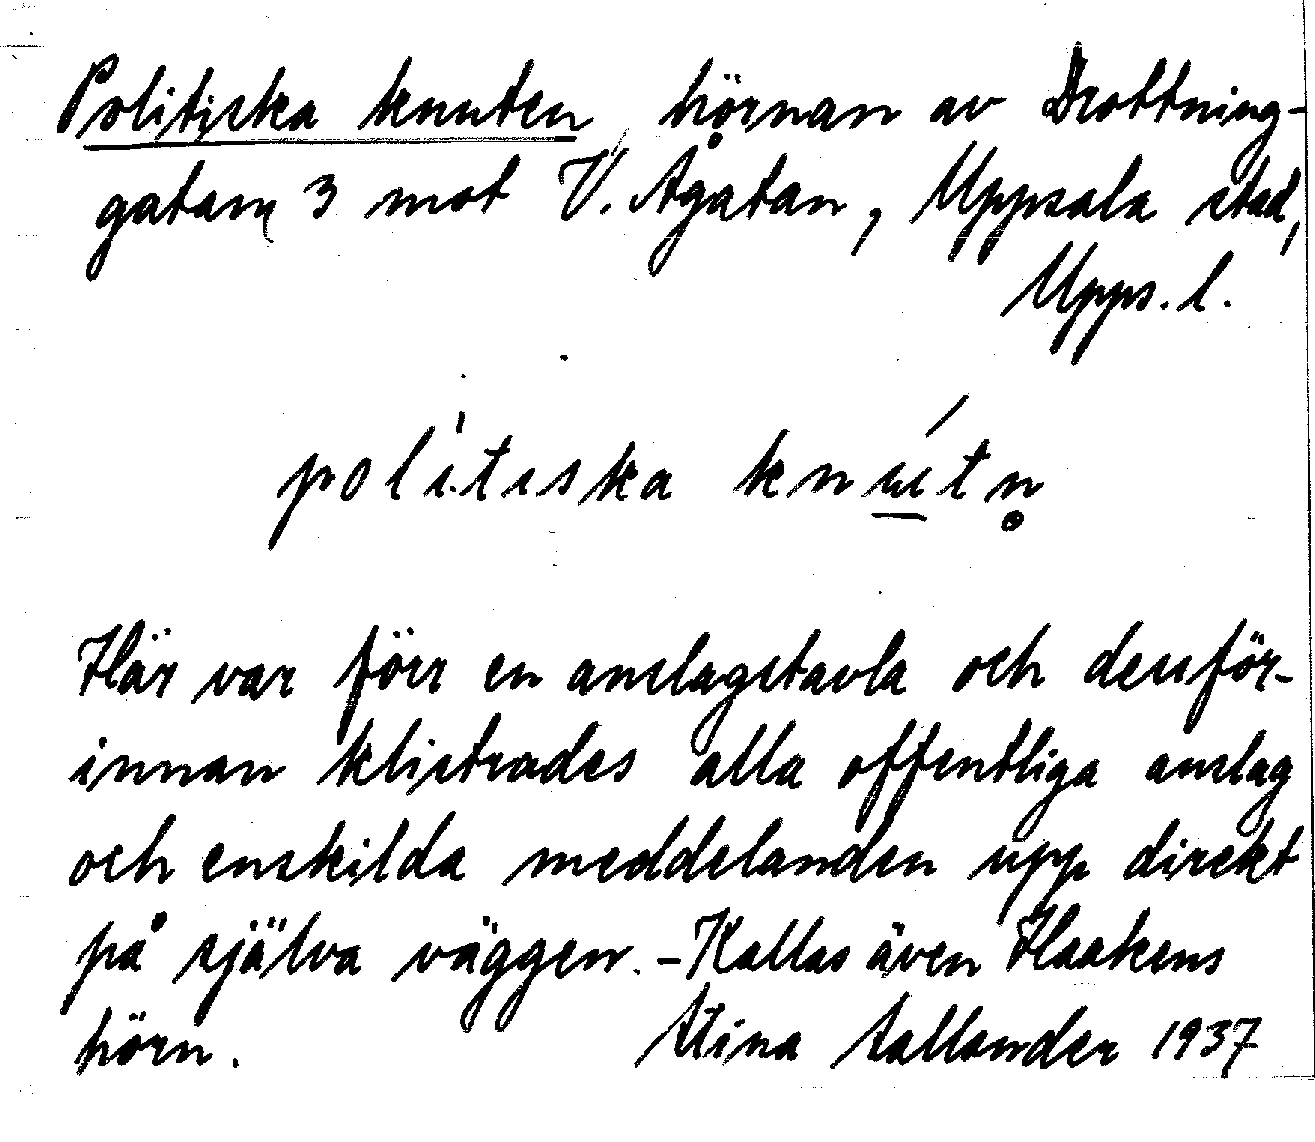 Politiska knuten, hörnan av Drottning-
gatan 3 mot V. Ågatan, Uppsala stad,
Upps. l.
polítiska knútn̥
Här var förr en anslagstavla och dessför-
innan klistrades alla offentliga anslag
och enskilda meddelanden upp direkt
på själva väggen. - Kallas även Haakens
hörn. Stina Sallander 1937